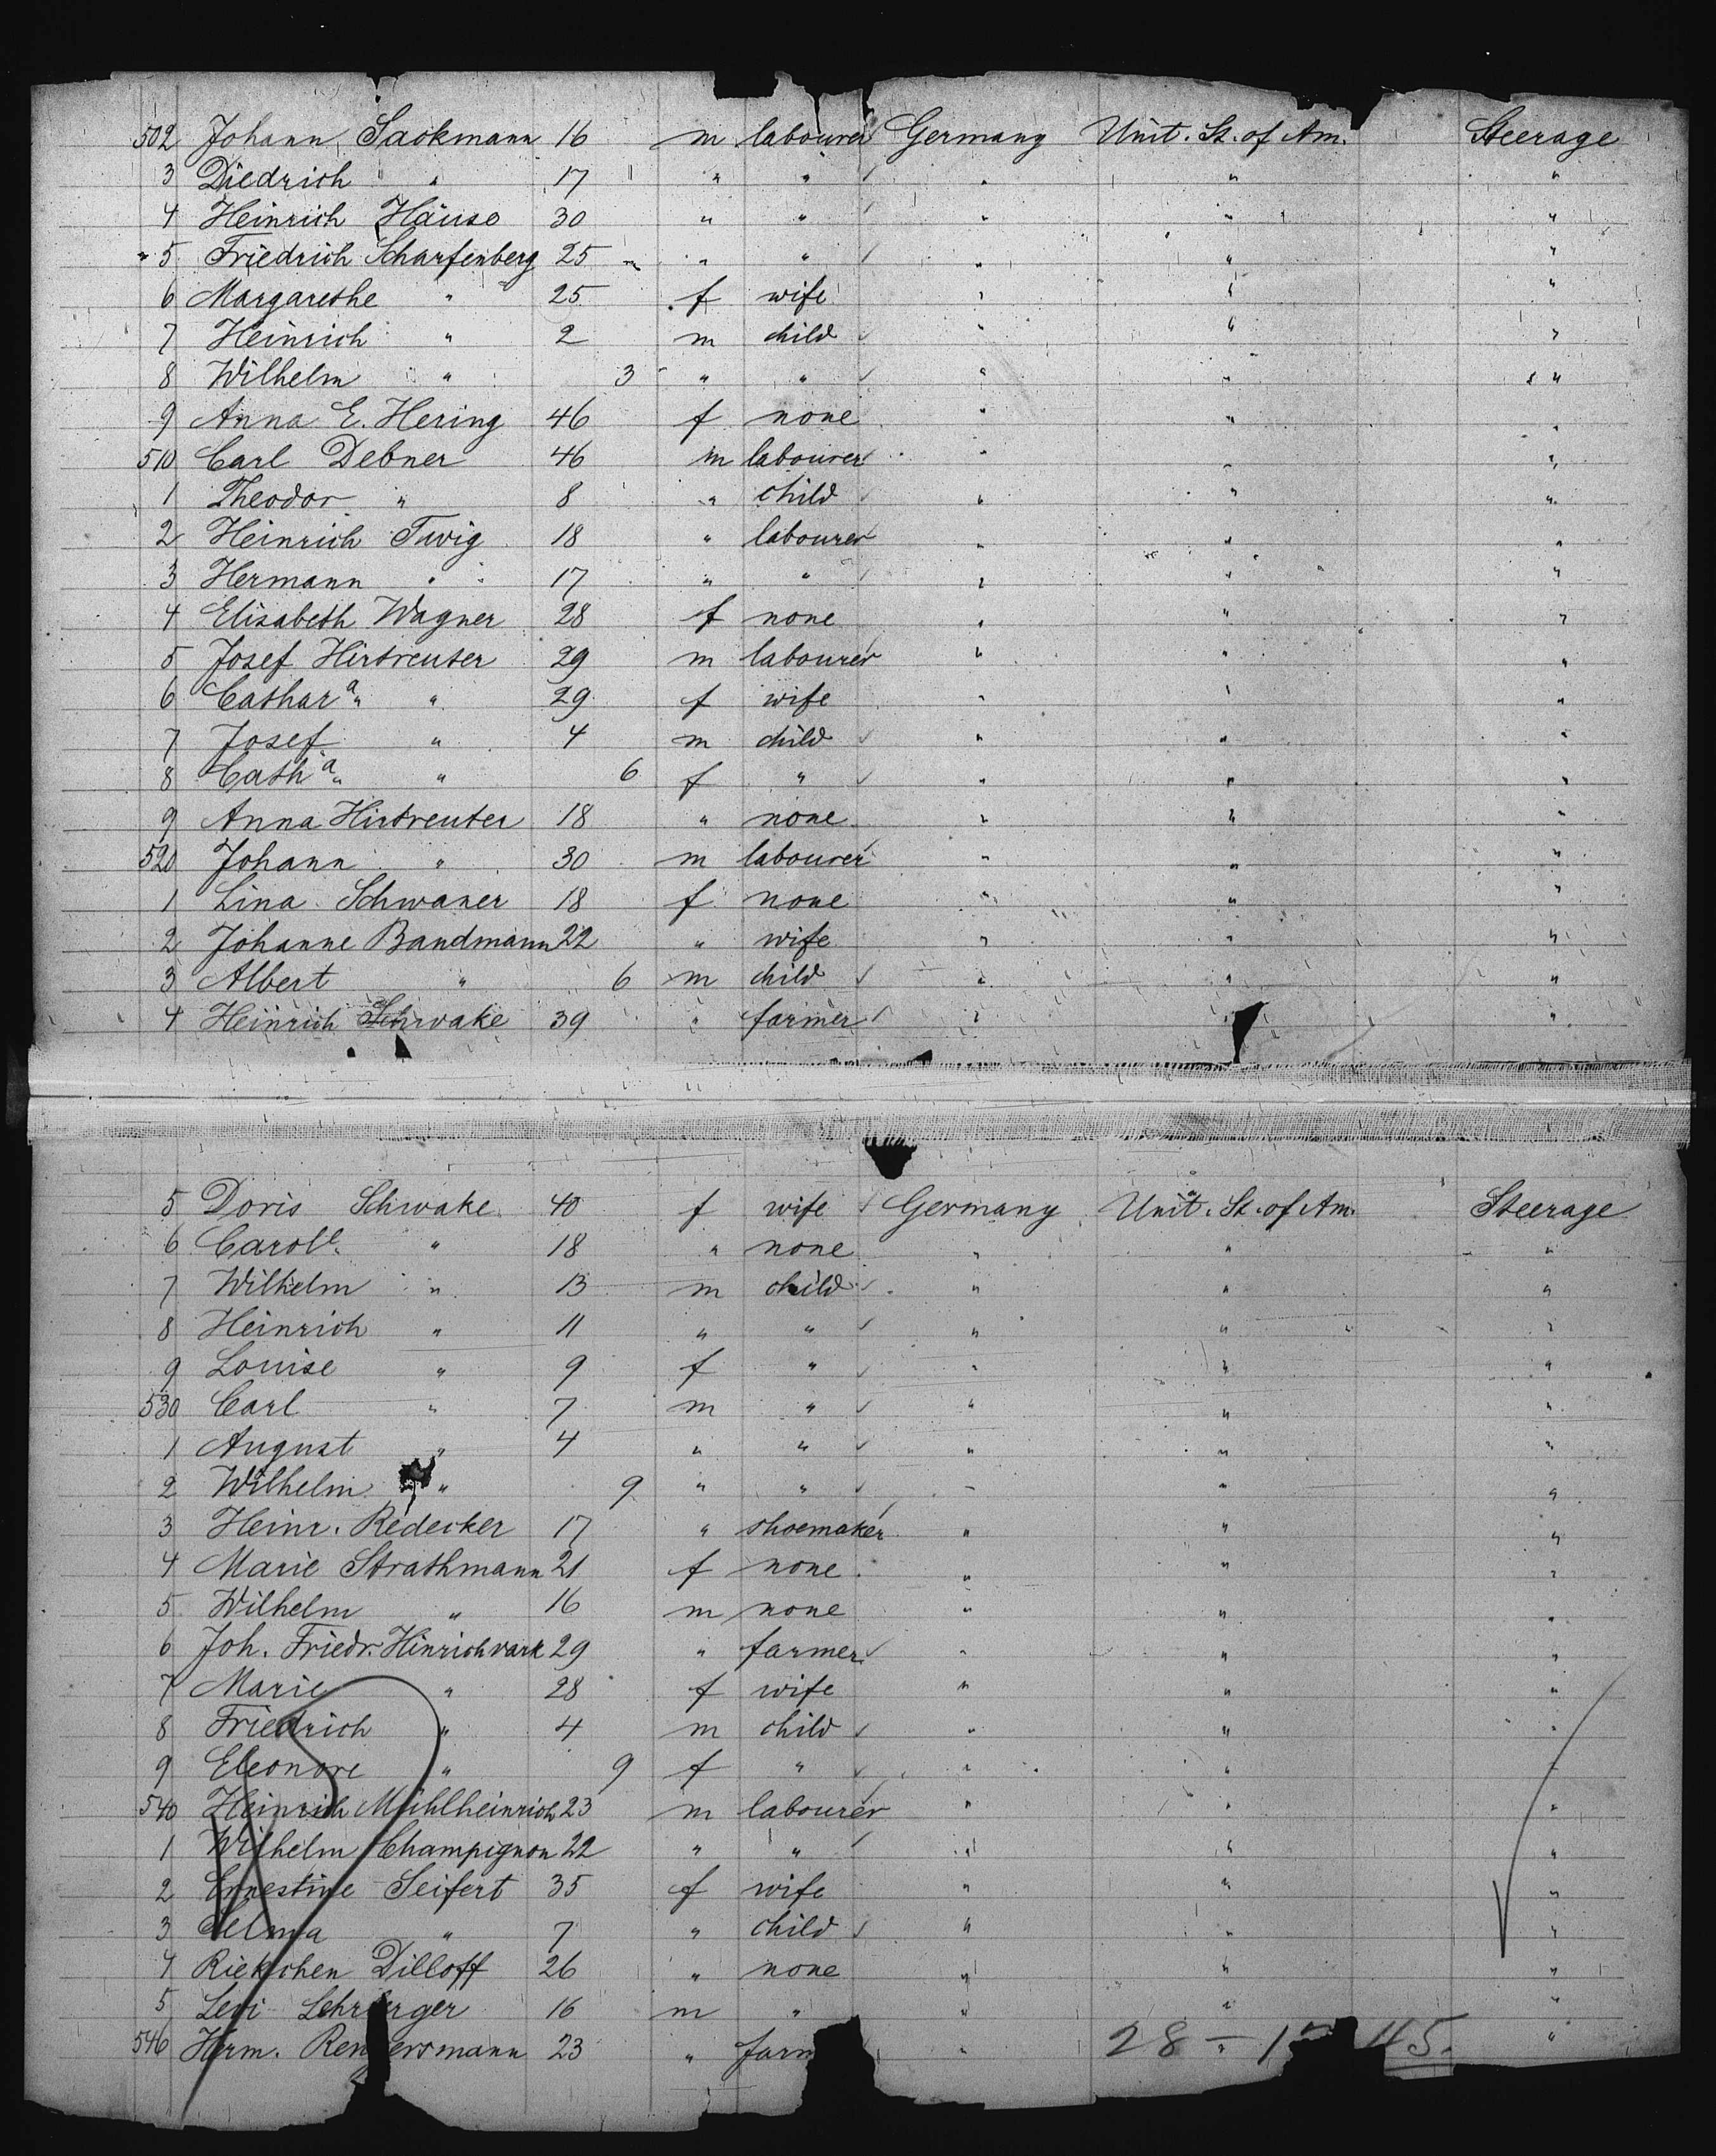 502 Johann Sackmann 16 m labourer Germany Unit. St. of Am. Steerage
3 Diedrich " 17 " " " " "
4 Heinrich Häuse 30 " " " " "
5 Friedrich Scharfenberg 25 " " " " "
6 Margarethe " 25 f wife " " "
7 Heinrich " 2 m child " " "
8 Wilhelm " 3 " " " " "
9 Anna E. Hering 46 f none " " "
510 Carl Debner 46 m labourer " " "
1 Theodor " 8 " child " " "
2 Heinrich Twig 18 " labourer " " "
3 Hermann " 17 " " " " "
4 Elisabeth Wagner 28 f none " " "
5 Josef Hirtreuter 29 m labourer " " "
6 Cathara " 29 f wife " " "
7 Josef " 4 m child " " "
8 Catha " 6 f " " " "
9 Anna Hirtreuter 18 " none " " "
520 Johann " 30 m labourer " " "
1 Lina Schwaner 18 f none " " "
2 Johanne Bandmann 22 " wife " " "
3 Albert " 6 m child " " "
4 Heinrich Schwake 39 " farmer " " "
5 Doris Schwake 40 f wife Germany Unit. St. of Am. Steerage
6 Carole " 18 " none " " "
7 Wilhelm " 13 m child " " "
8 Heinrich " 11 " " " " "
9 Louise " 9 f " " " "
530 Carl " 7 m " " " "
1 August " 4 " " " " "
2 Wilhelm " 9 " " " " "
3 Heinr. Redecker 17 " shoemaker " " "
4 Marie Strathmann 21 f none " " "
5 Wilhelm " 16 m none " " "
6 Joh. Friedr. Hinrichvark 29 " farmer " " "
7 Marie " 28 f wife " " "
8 Friedrich " 4 m child " " "
9 Eleonore " 9 f " " " "
540 Heinrich Mühlheinrich 23 m labourer " " "
1 Wilhelm Champignon 22 " " " " "
2 Ernestine Seifert 35 f wife " " "
3 Selma " 7 " child " " "
4 Riekchen Dilloff 26 " none " " "
5 Levi 16 m " " " "
546 Herm. 23 " farm " "
28 – 1 45.